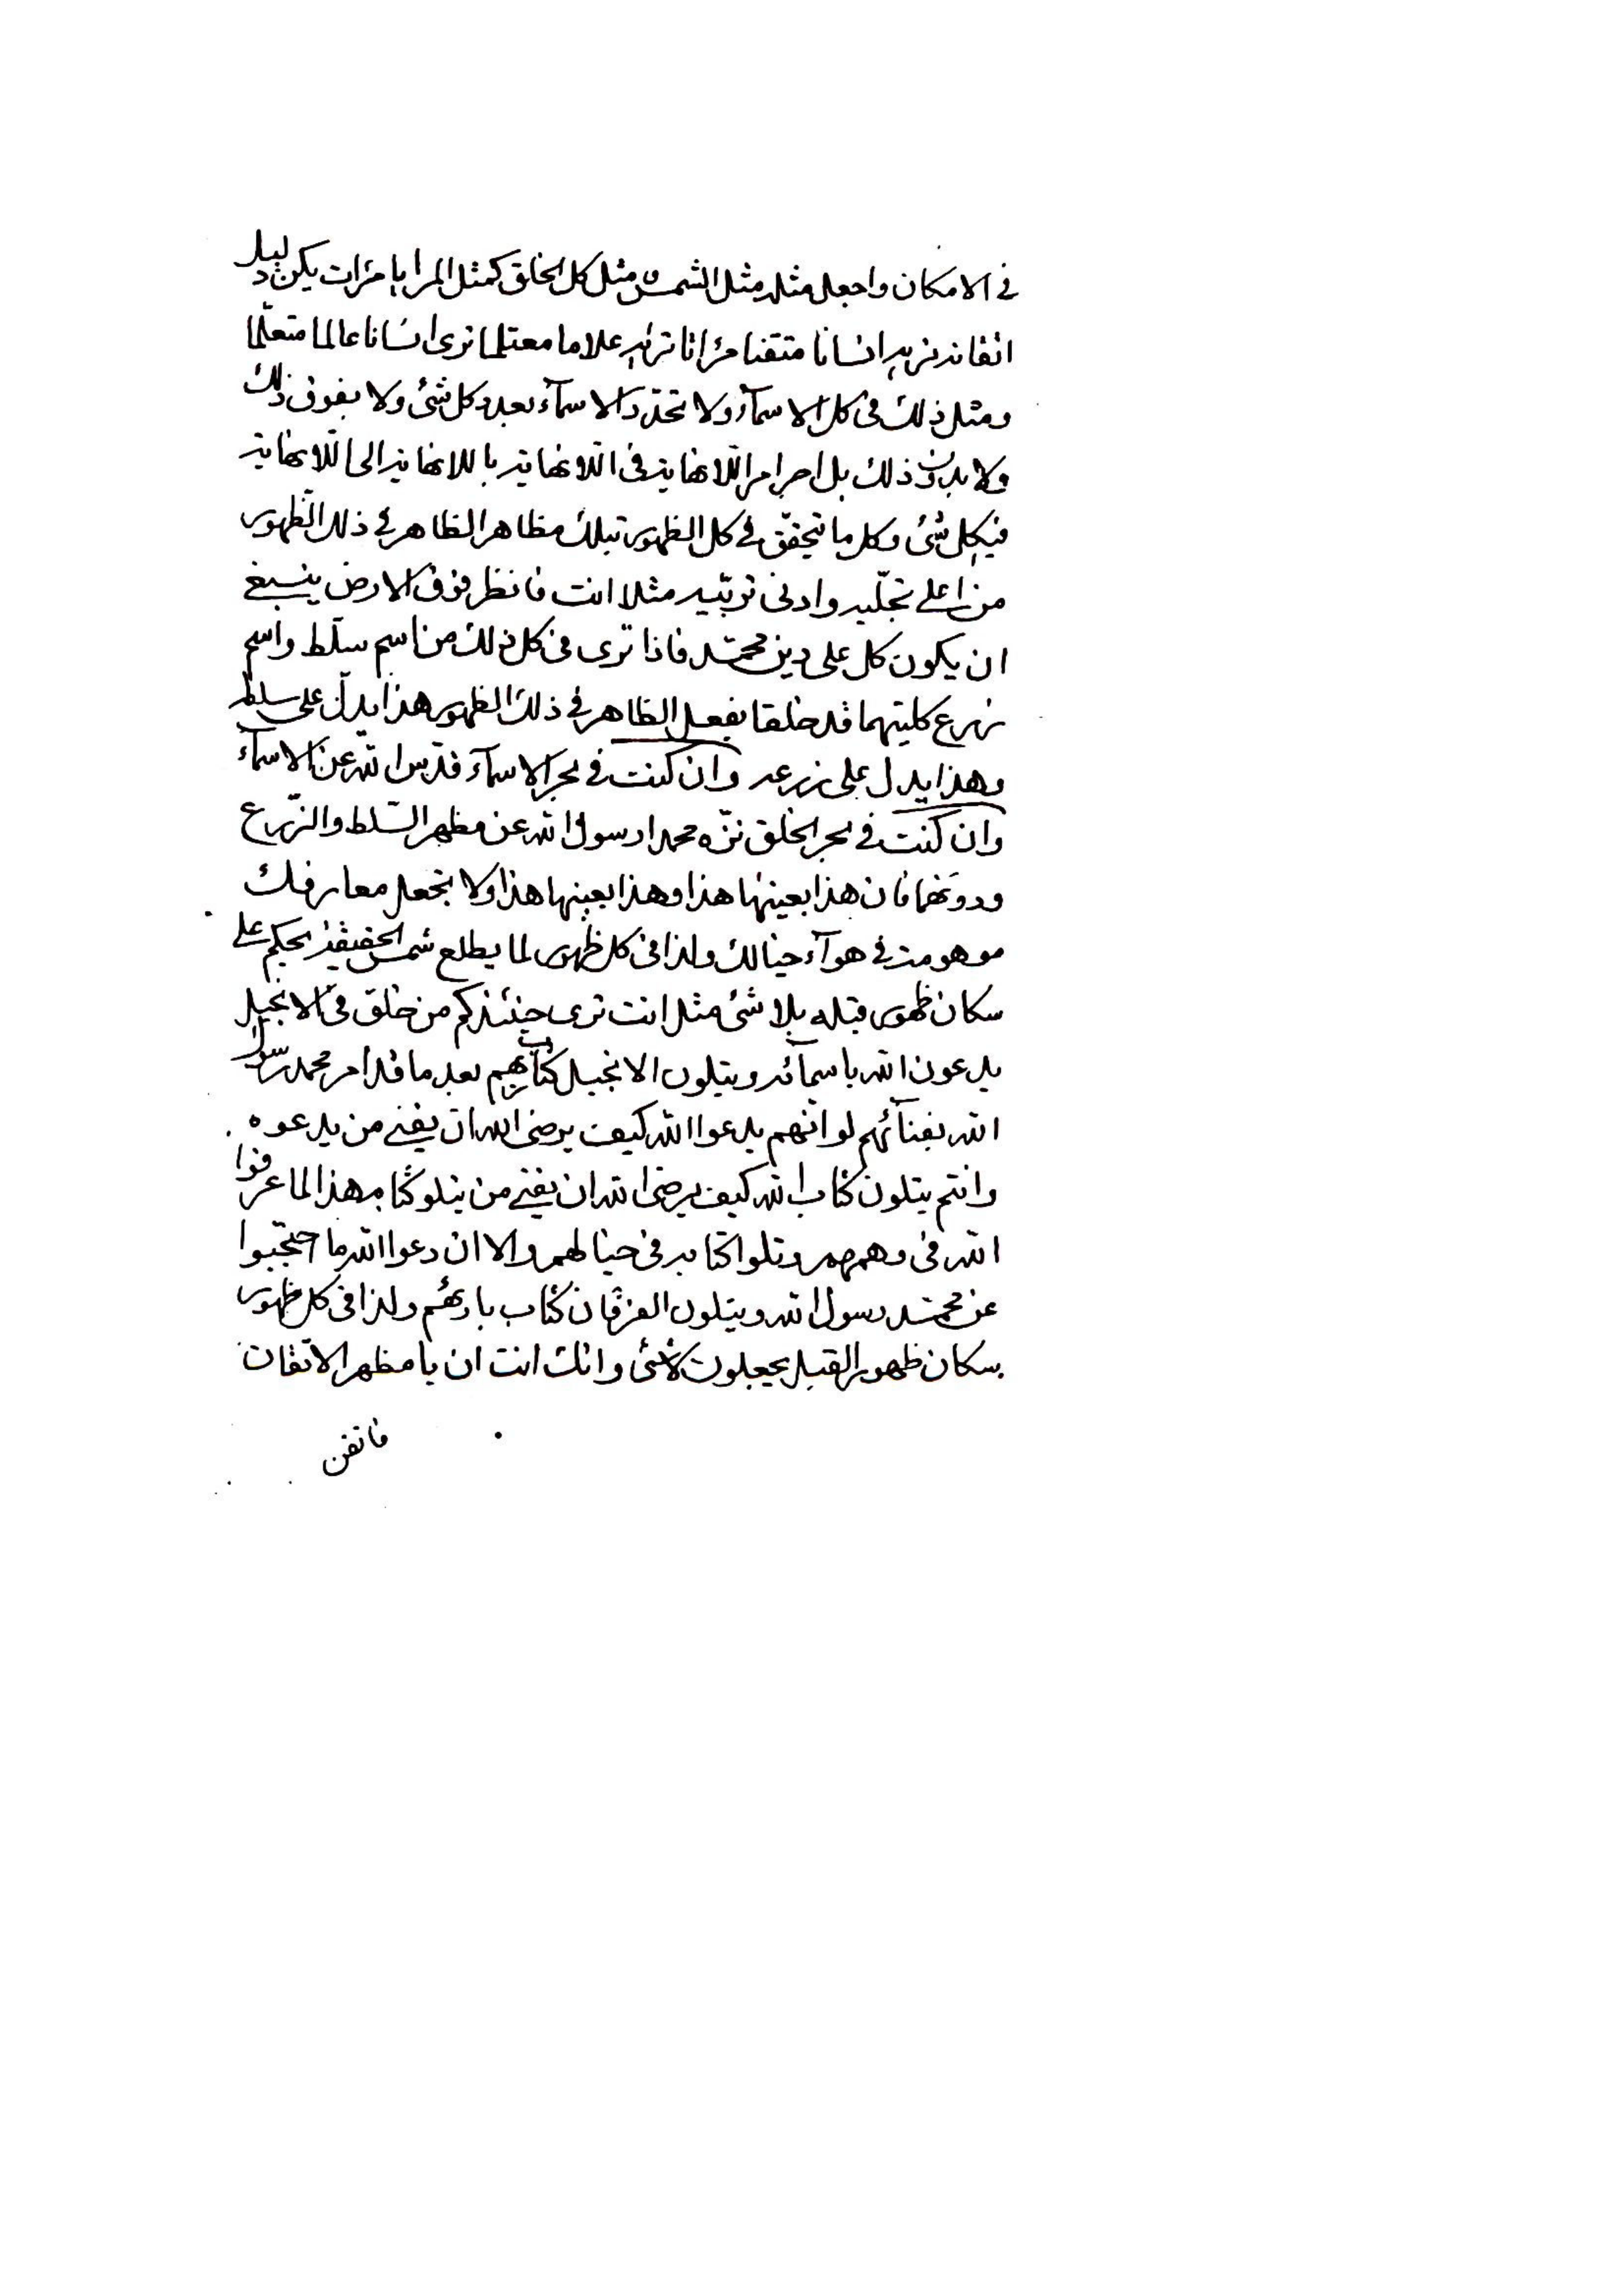 في الامكان واجعل مثله مثل الشمس و مثل كل الخلق كمثل المرايا مرات يكن دليل
اتقانه تريه انسانا متقنا مرانا تريه علاما معتلما ترى انسانا عالما متعلّما
ومثل ذلك فى كل الاسمآء ولا تحدّد الاسمآء بعدد كل شئ ولا بفوق ذلك
ولا بدون ذلك بل اجر امر اللّانهاية فى اللّانهاية باللانهاية الى اللّانهاية
فيكل شئ وكل ما يتحقّق في كل الظهور تبلك مظاهر الظاهر في ذلك الظّهور
من اعلى تجلّيه وادنى تربّيه مثلا انت فانظر فوق الارض ينبغي
ان يكون كل على دين محمّد فاذا ترى فى كل ذلك من اسم سلّط واسم
زرع كليتهما قد خلقا بفعل الظاهر في ذلك الظهور هذا يدلّ على سلطه
وهذا يدل على زرعه وان كنت في بحر الاسمآء قدّس الله عن الاسمآء
وان كنت في بحر الخلق نزّه محمدا رسول الله عن مظهر السّلط والزّرع
ودونهما فان هذا بعينها هذا وهذا بعينها هذا ولا تجعل معارفك
موهومة في هوآء خيالك ولذا فى كل ظهور لما يطلع شمس الحقيقة يحكم على
سكان ظهور قبله بلا شئ مثل انت ترى حينئذ كم من خلق فى الانجيل
يدعون الله باسمائه ويتلون الانجيل كتاب ربهم بعد ما قد امر محمد رسول
الله بفنآئهم لو انّهم يدعوا الله كيف يرضى الله ان يفنى من يدعوه
وانتم يتلون كتاب الله كيف يرضى الله ان يفنى من يتلو كتابه هذا لما عرفوا
الله فى وهمهم وتلوا كتابه فى خيالهم والا ان دعوا الله ما احتجبوا
عن محمّد رسول الله ويتلون الفرقان كتاب بارئهم ولذا فى كل ظهور
سكان ظهور القبل يجعلون كلاشئ وانك انت ان يا مظهر الاتقان
فاتقن